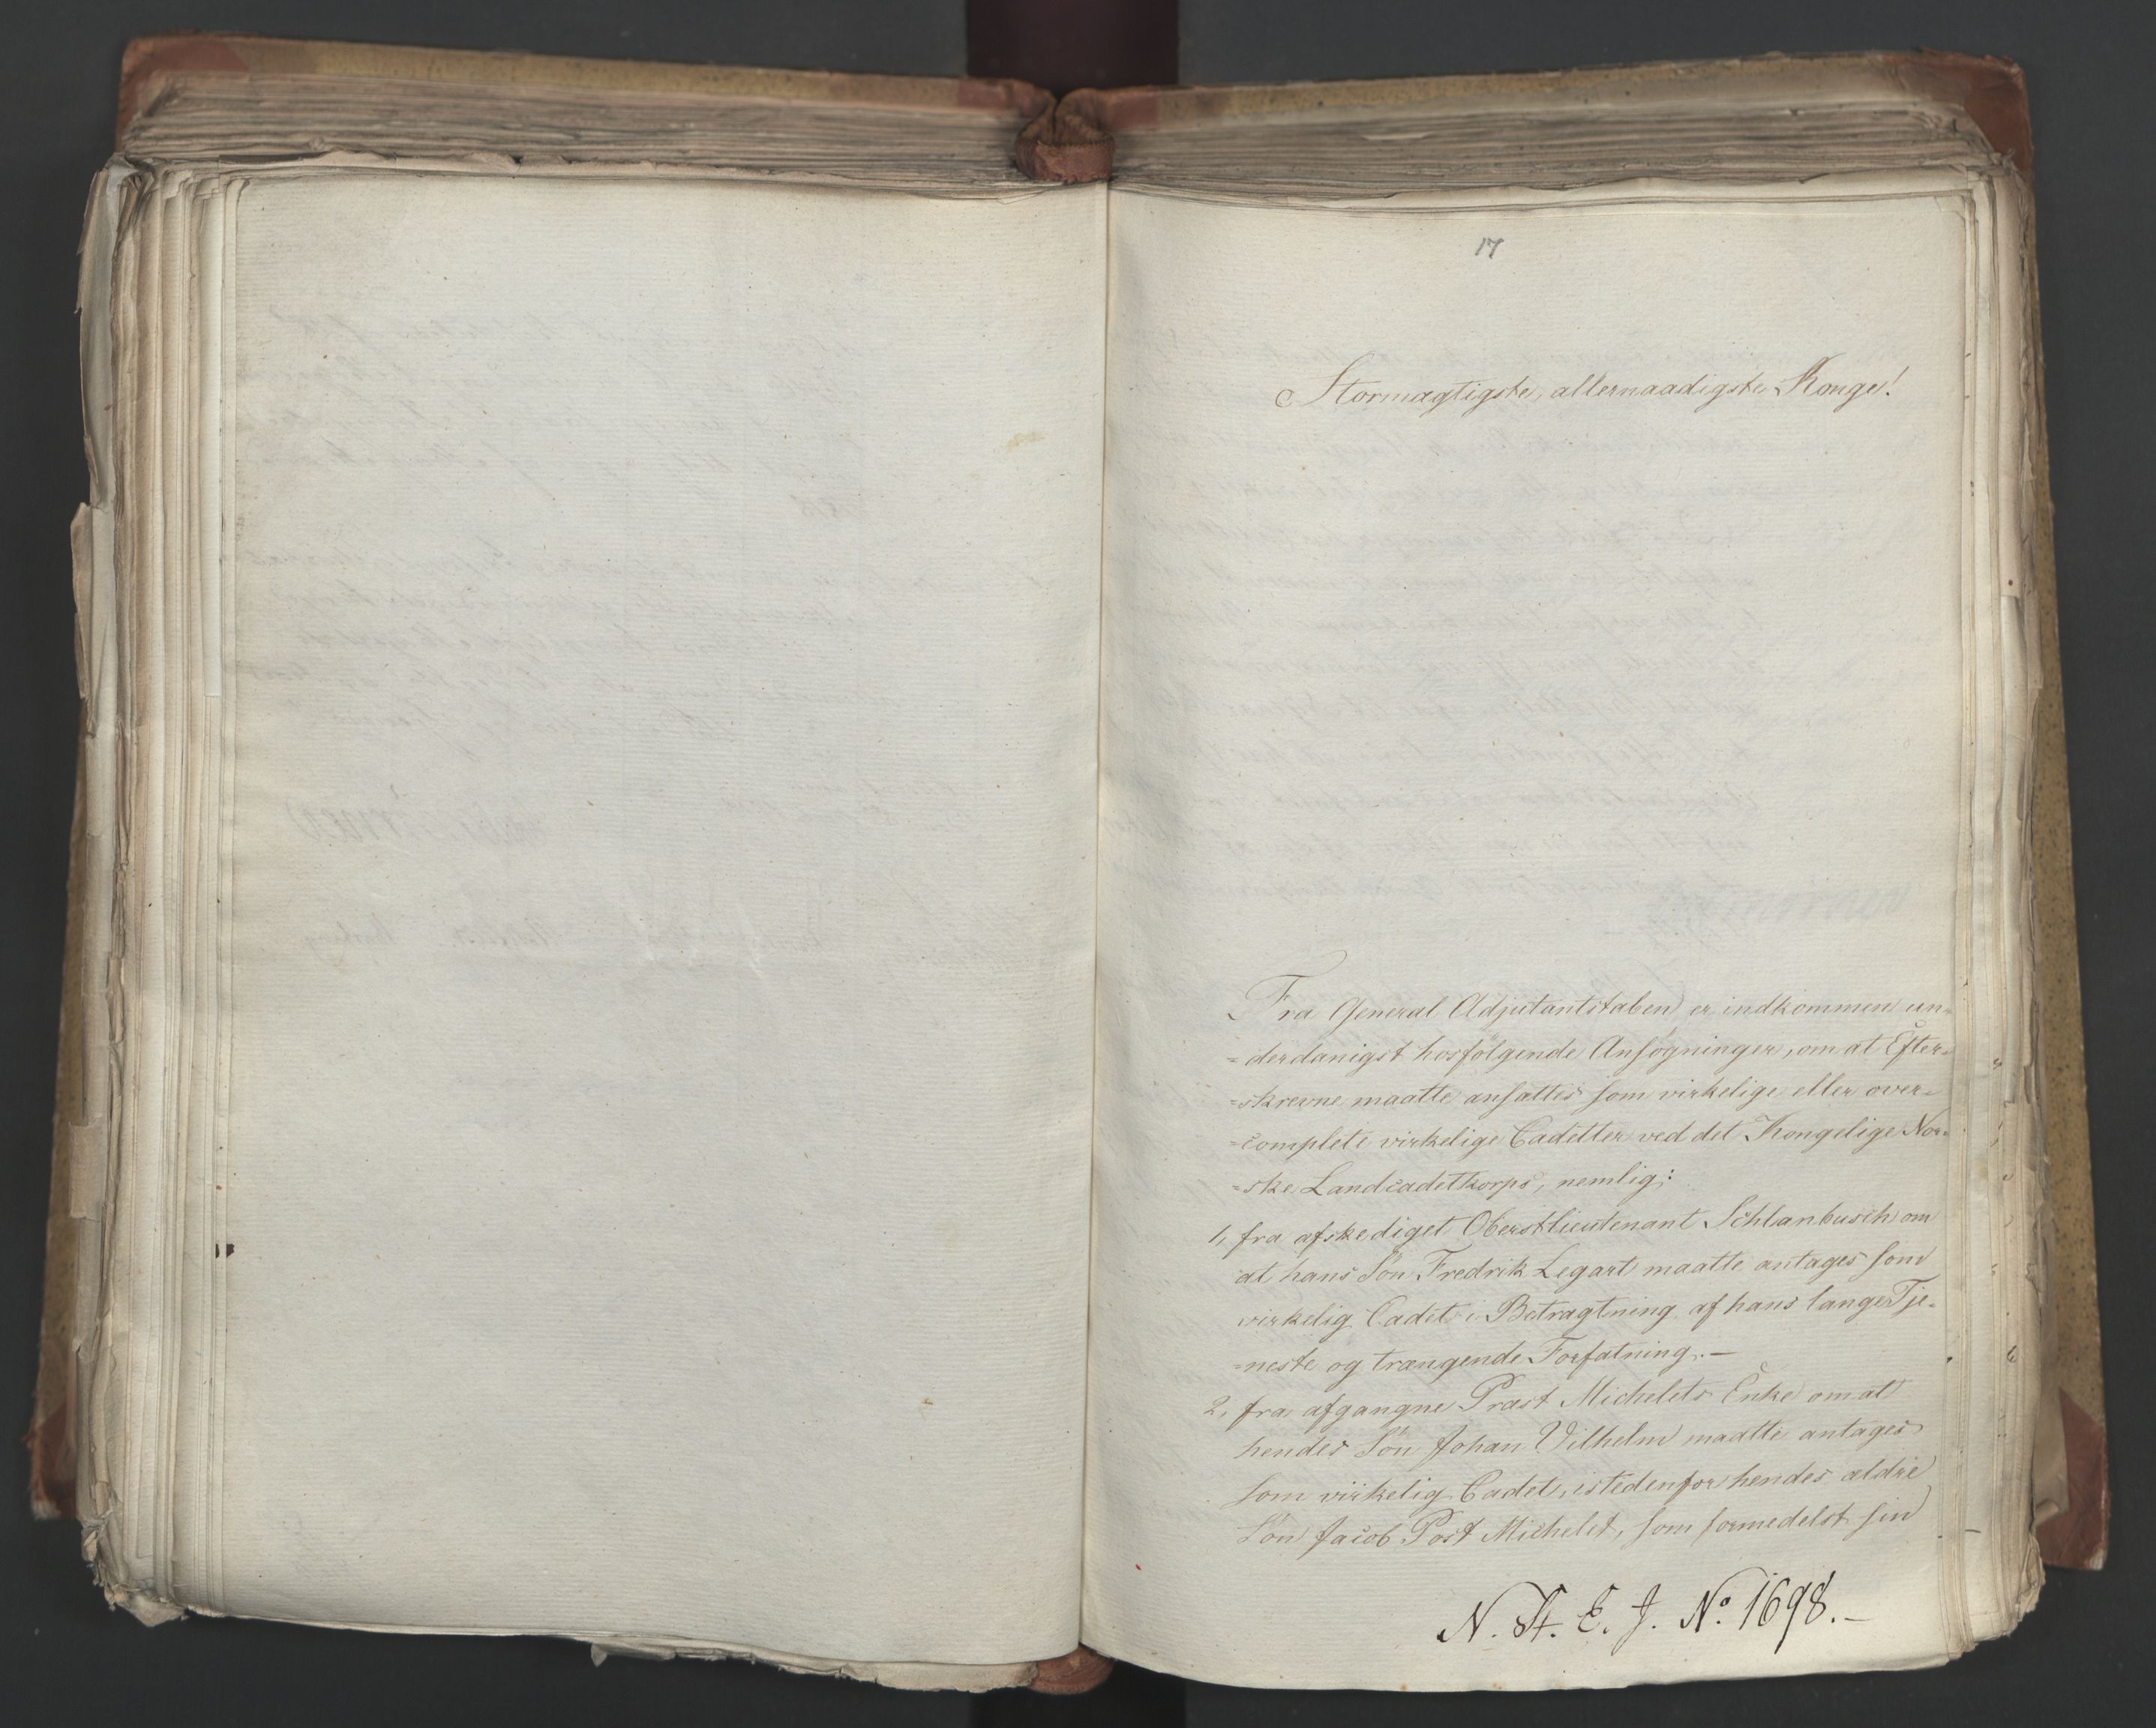 17
Stormægtigste, allernaadigste Konge!
Fra General Adjutantstaben er indkommen un-
-derdanigst hosfølgende Ansøgninger, om at Efter-
-skrevne maatte ansættes som virkelige eller over-
-complete virkelige Cadetter ved det Kongelige Nor-
-ske Landcadetkorps, nemlig:
1, fra afskediget Oberstlieutenant Schlanbusch om
at hans Søn Fredrik Legart maatte antages som
virkelig Cadet i Betragtning af hans lange Tje-
-neste og trængende Forfatning.—
2, fra afgangne Præst Michelets Enke om at
hendes Søn Johan Vilhelm maatte antages
som virkelig Cadet, istedenfor hendes ældre
Søn Jacob Post Michelet, som formedelst sin
N. St. E. J. No. 1698.—